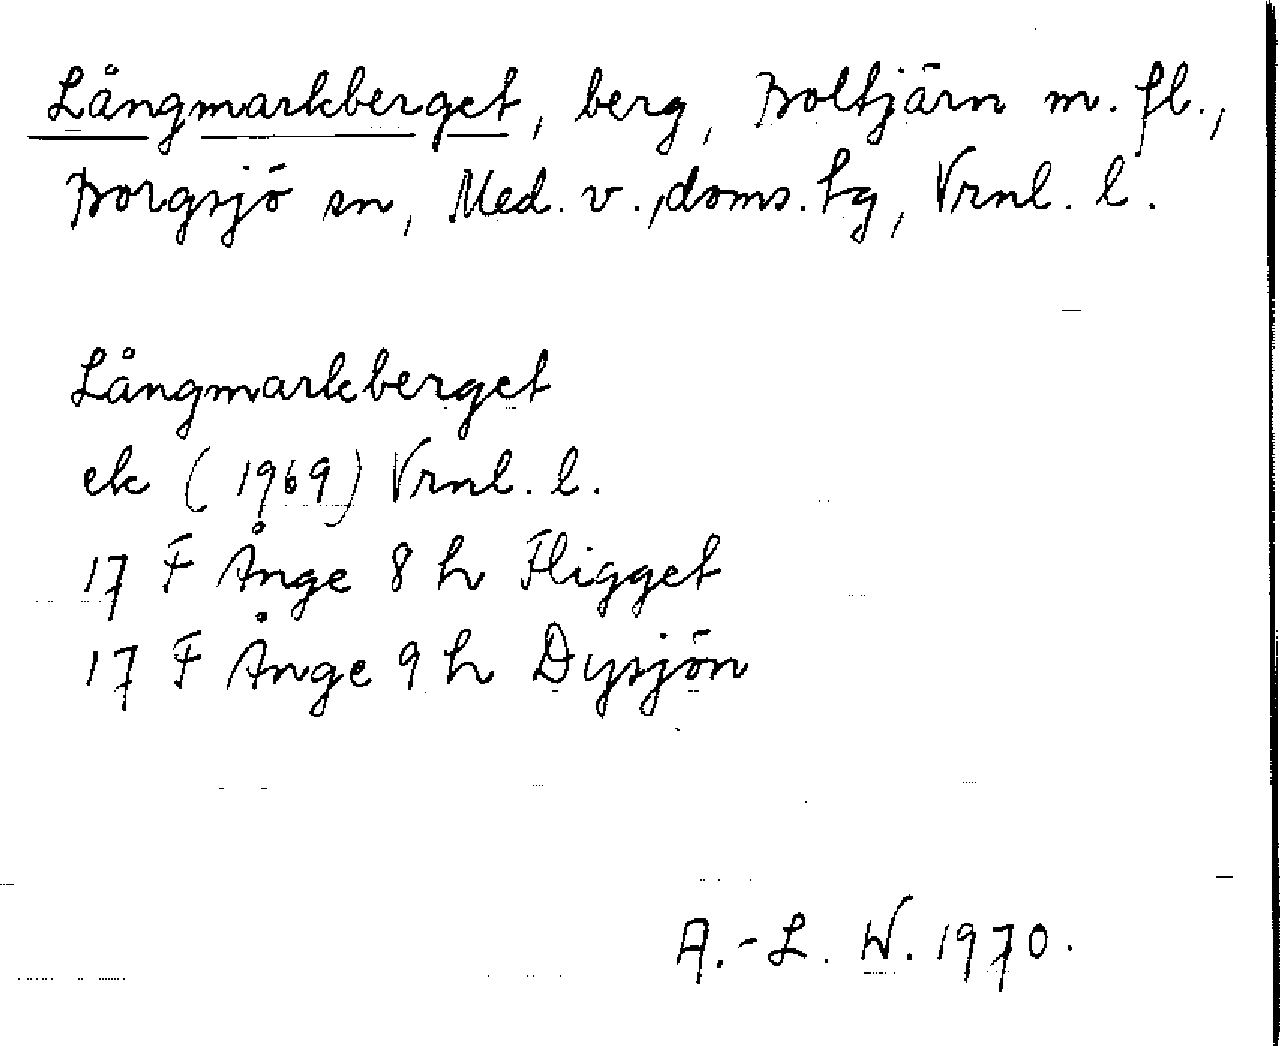 Långmarkberget, berg, Boltjärn m. fl.,
Borgsjö sn, Med. v. doms. tg, Vrnl. l.
Långmarkberget
ek (1969) Vrnl. l.
17 F Ånge 8 h Fligget
17 F Ånge 9 h Dysjön
A.-L. W. 1970.